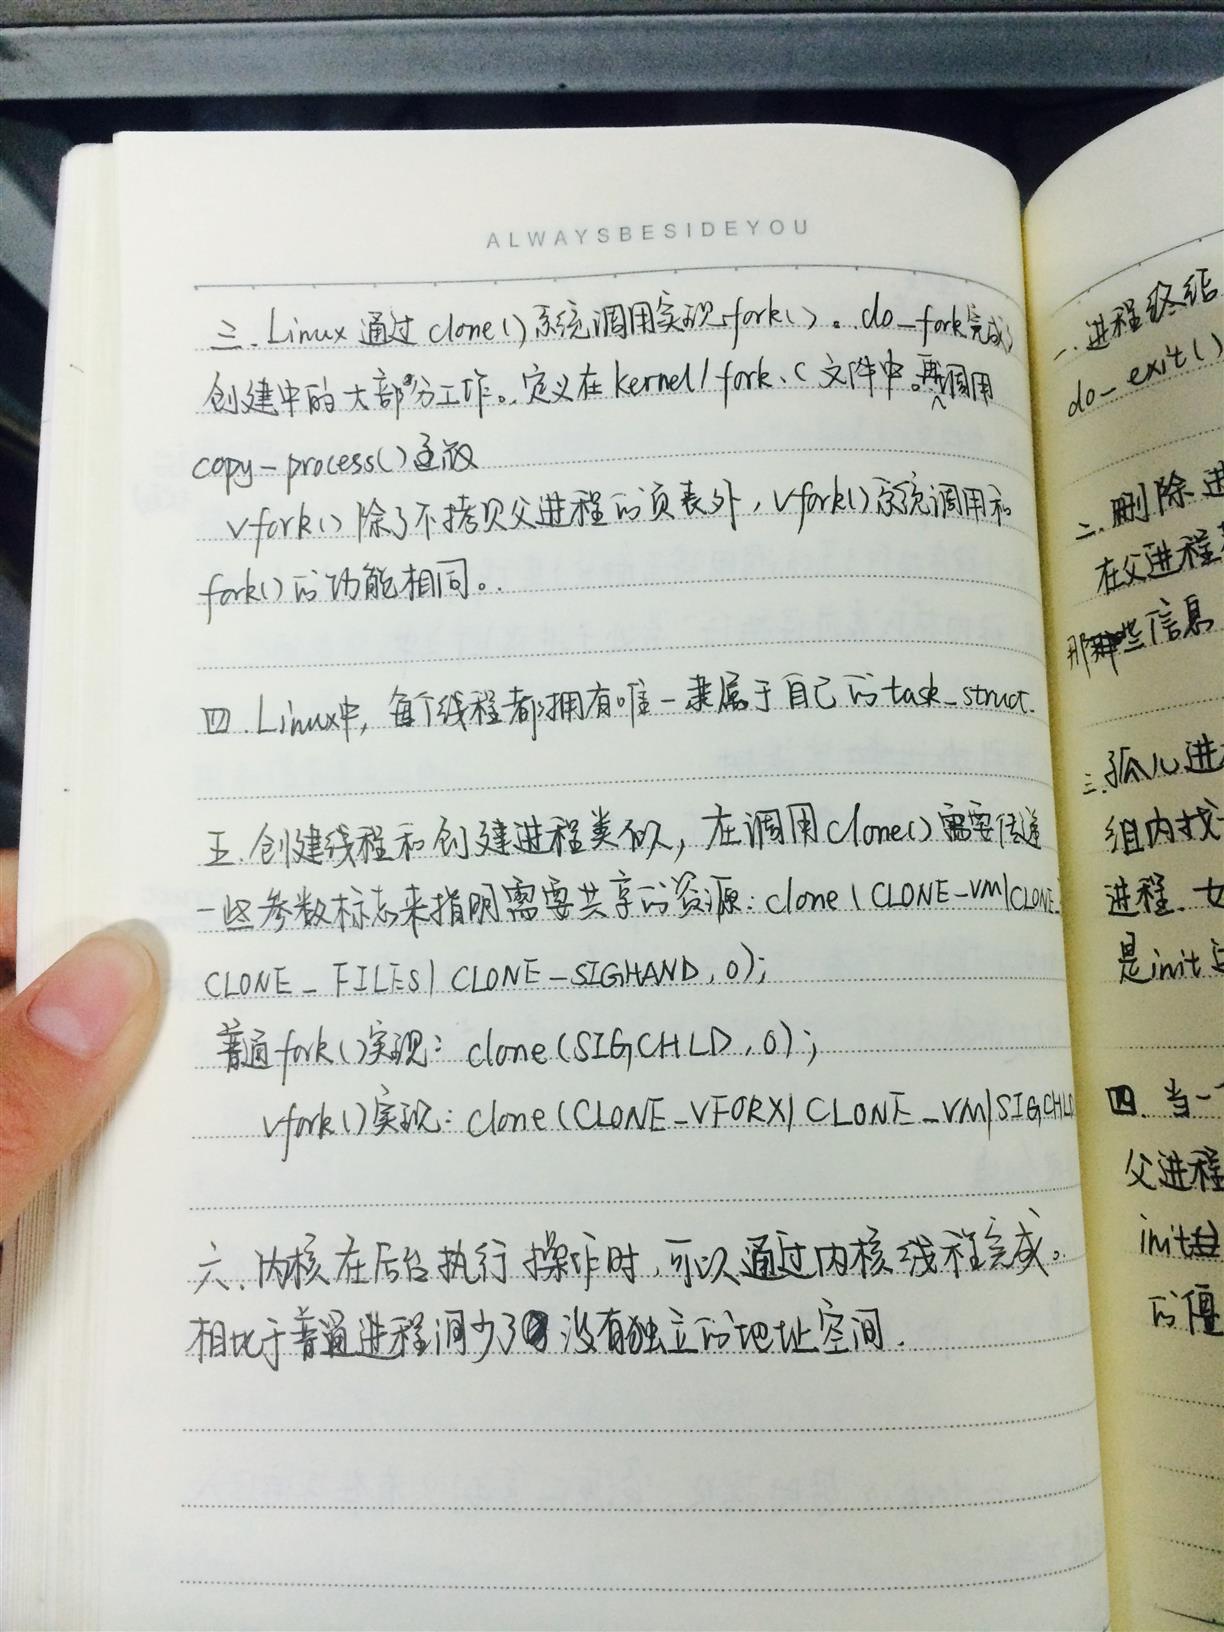 ALWAYSBESIDEYOU
三. Linux 通过 clone() 系统调用实现 fork() 。 do_fork 完成了
创建中的大部分工作。定义在 kernel/fork.c 文件中。再调用
copy_process() 函数
vfork() 除了不拷贝父进程的页表外, vfork() 系统调用和
fork() 的功能相同。
四. Linux中, 每个线程都拥有唯一隶属于自己的 task_struct.
五. 创建线程和创建进程类似, 在调用 clone() 需要传递
一些参数标志来指明需要共享的资源: clone ( CLONE_VM|CLONE_
CLONE_FILES| CLONE_SIGHAND, 0);
普通 fork() 实现: clone (SIGCHLD, 0);
vfork() 实现: clone (CLONE_VFORK| CLONE_VM|SIGCHLD
六. 内核在后台执行操作时, 可以通过内核线程完成。
相比于普通进程间少了 没有独立的地址空间.
一. 进程终结
do_exit()
二. 删除进
在父进程
那些信息
三. 孤儿进
组内找
进程.
是init
四. 当一
父进程
init
的僵